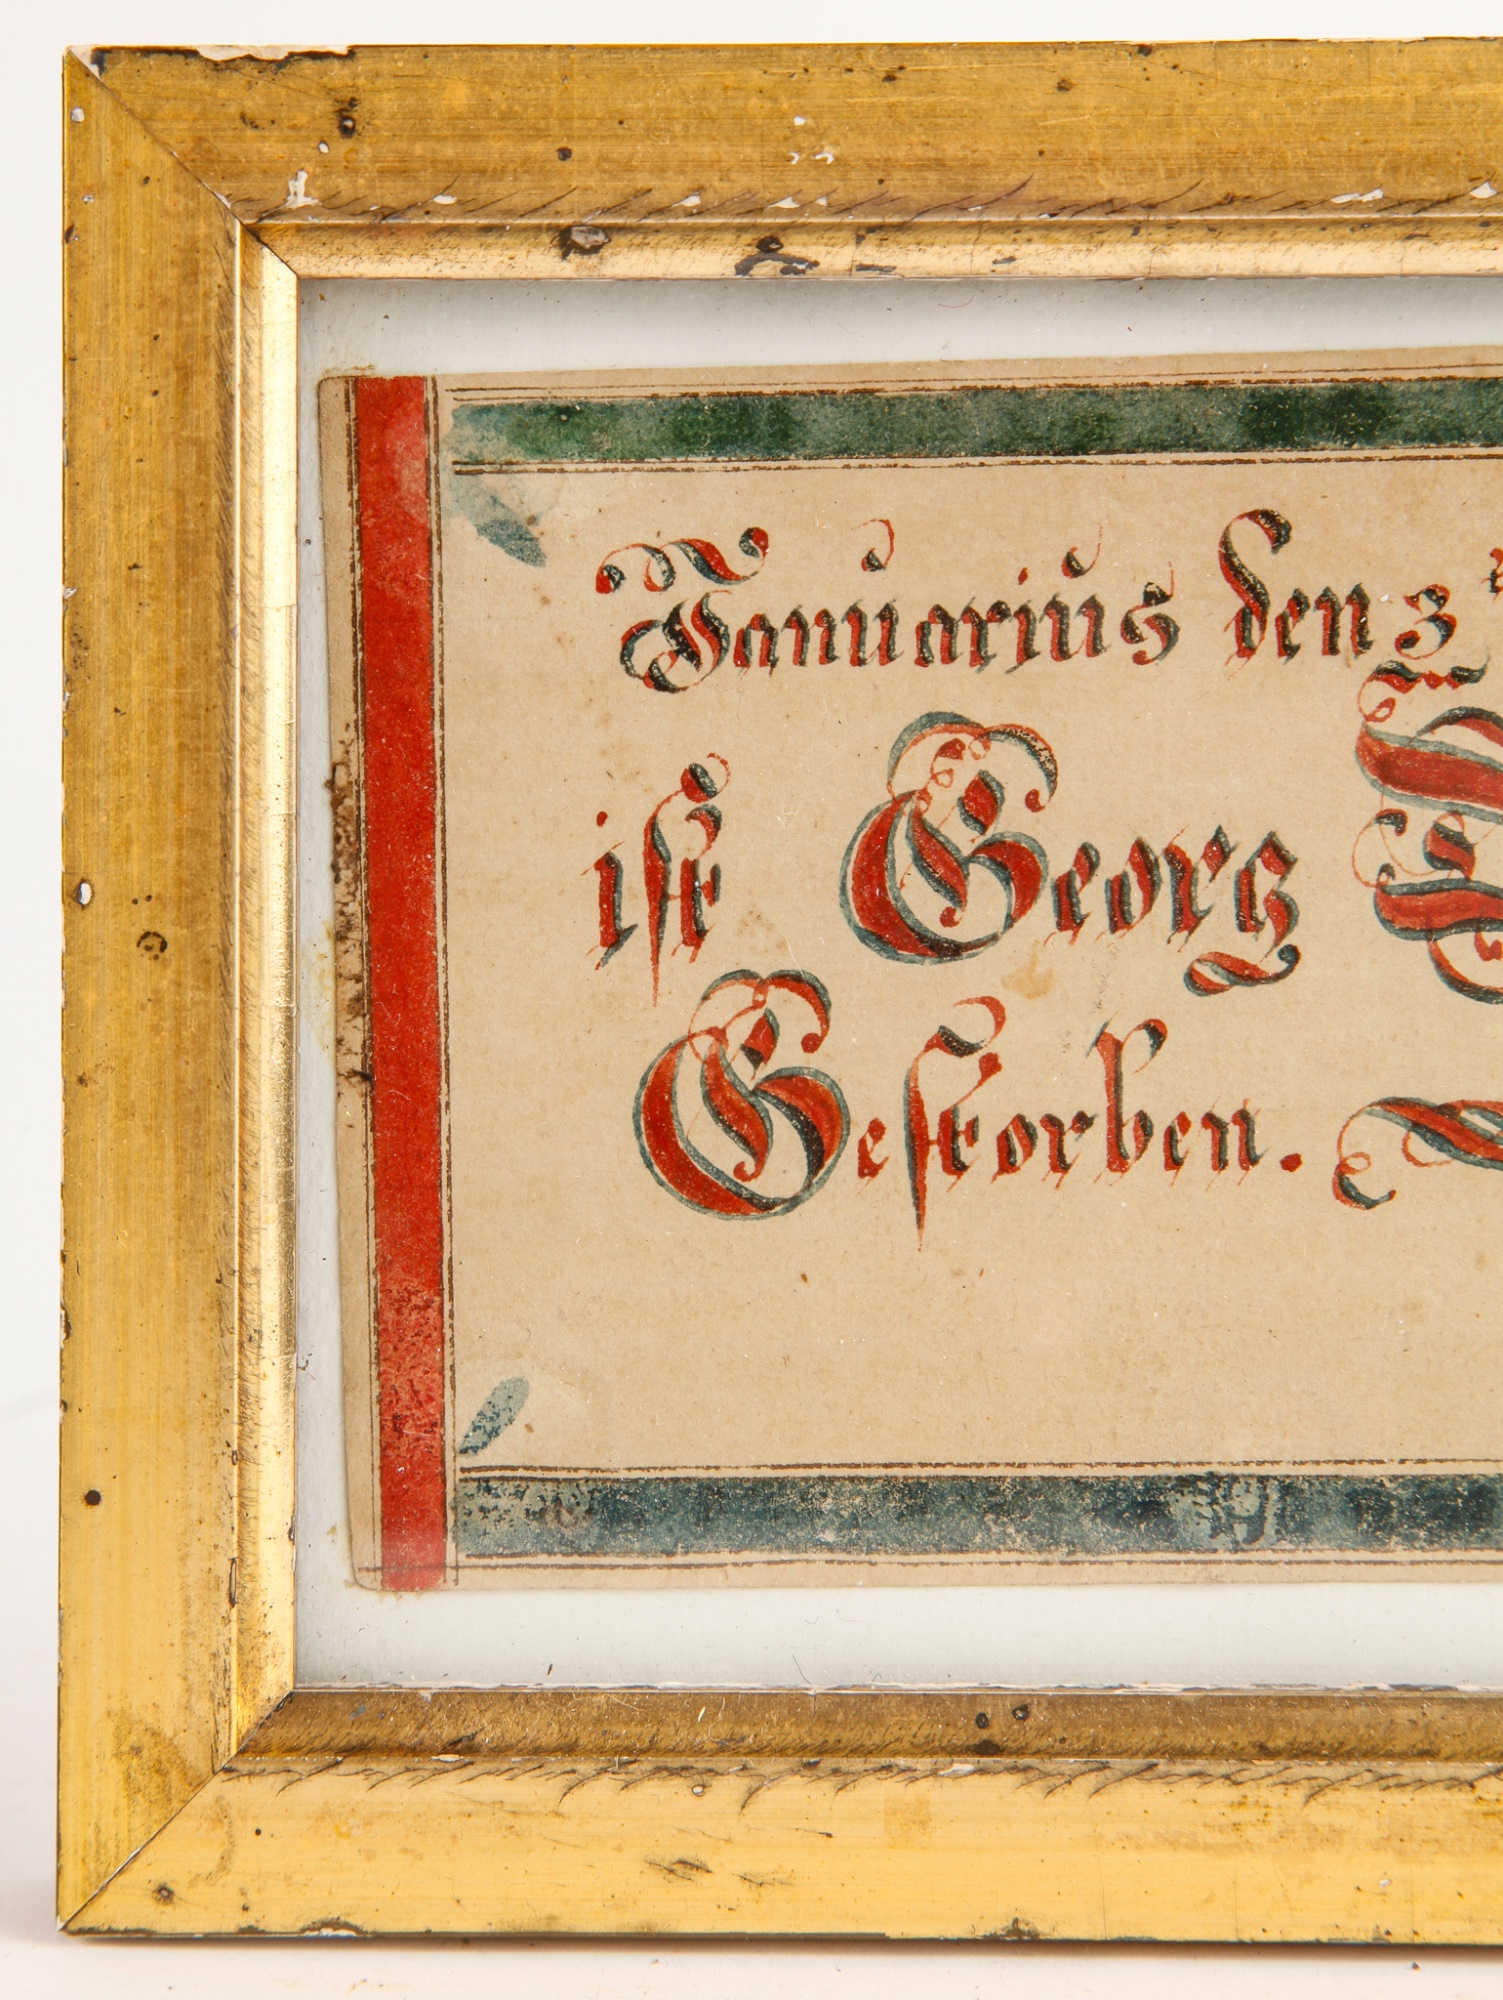 Januarius den 3
ist Georg
Gestorben.